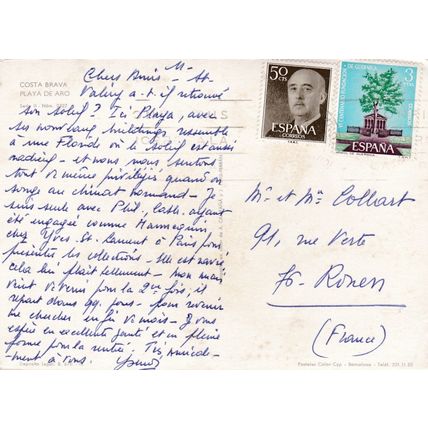 COSTA BRAVA
PLAYA DE ARO
Chers Amis
St-
Valéry a-t-il retrouvé
son soleil? Ici Playa, avec
ses nombreux buildings ressemble
à une Floride où le soleil est aussi
radieux - et nous nous sentons
tout de même privilégiés quand on
songe au climat normand - Je
suis seule avec Phil., Cath. ayant
été engagée comme Mannequin
chez Yves St-Laurent à Paris pour
présenter les collections - Elle est ravie
cela lui plaît tellement - Mon mari
vient de venir pour la 2me fois, et
repart dans qq. jours - pour revenir
me chercher enfin du mois - Je vous
espère en excellente santé et en pleine
forme pour la rentrée. Très amicale-
ment à vous.
50
CTS
ESPAÑA
CORREOS
3
PTAS
DE GUERNICA
ESPAÑA
Mr et Me Collart
91, rue Verte
76. Rouen
(France)
Postales Color Cyp. - Barcelona -